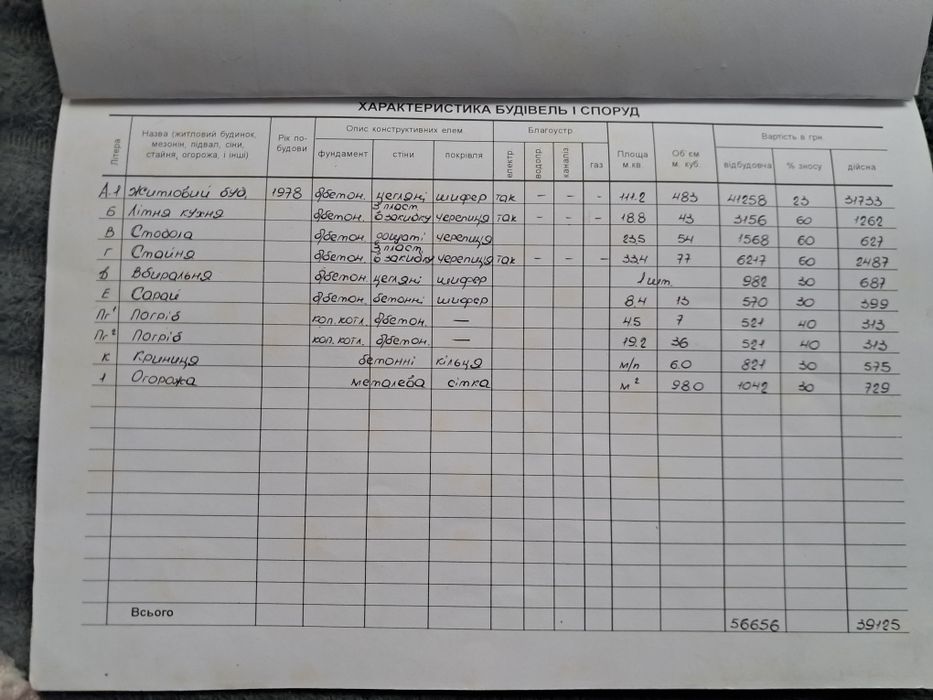 ХАРАКТЕРИСТИКА БУДІВЕЛЬ І СПОРУД
Літера Назва (житловий будинок, мезонін, підвал, сіни, стайня, огорожа, і інші) Рік побудови Опис конструктивних елем. Благоустр. Площа м.кв. Об'єм м. куб. Вартість в грн.
фундамент стіни покрівля електр. водопр. каналіз. газ відбудовна % зносу дійсна
А.1 Житловий буд. 1978 ф.бетон. цегляні шифер так – – – 111.2 483 41258 23 31733
Б Літня кухня ф.бетон. з пласт. в закидку черепиця так – – – 18.8 43 3156 60 1262
В Стодола ф.бетон. дощаті черепиця 23.5 54 1568 60 627
Г Стайня ф.бетон. з пласт. в закидку черепиця так – – – 33.4 77 6217 60 2487
Д Вбиральня ф.бетон. цегляні шифер 1 шт. 982 30 687
Е Сарай ф.бетон. бетонні шифер 8.4 13 570 30 399
Пг¹ Погріб коп. котл. ф.бетон. — 4.5 7 521 40 313
Пг² Погріб коп. котл. ф.бетон. — 19.2 36 521 40 313
К Криниця бетонні кільця м/п 6.0 821 30 575
1 Огорожа металева сітка м² 98.0 1042 30 729
Всього 56656 39125